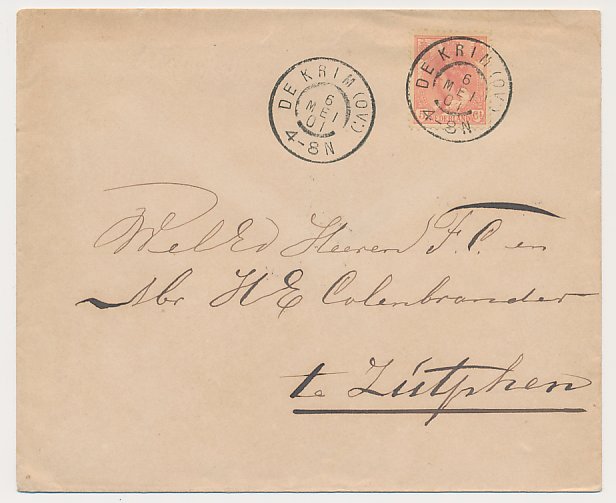 DE KRIM (OV.)
6
MEI
01
4-8N
DE KRIM (OV.)
6
MEI
01
4-8N
WelEd Heeren F. C. en
Abr H E Colenbrander
te Zutphen